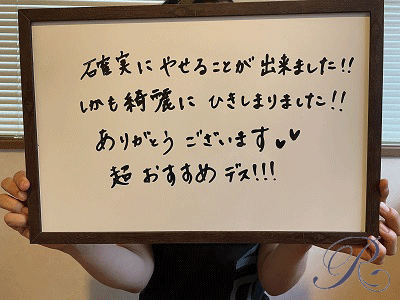 確実に やせることが 出来ました!!
しかも綺麗に ひきしまりました!!
ありがとう ございます♥♥
超 おすすめ デス!!!
R